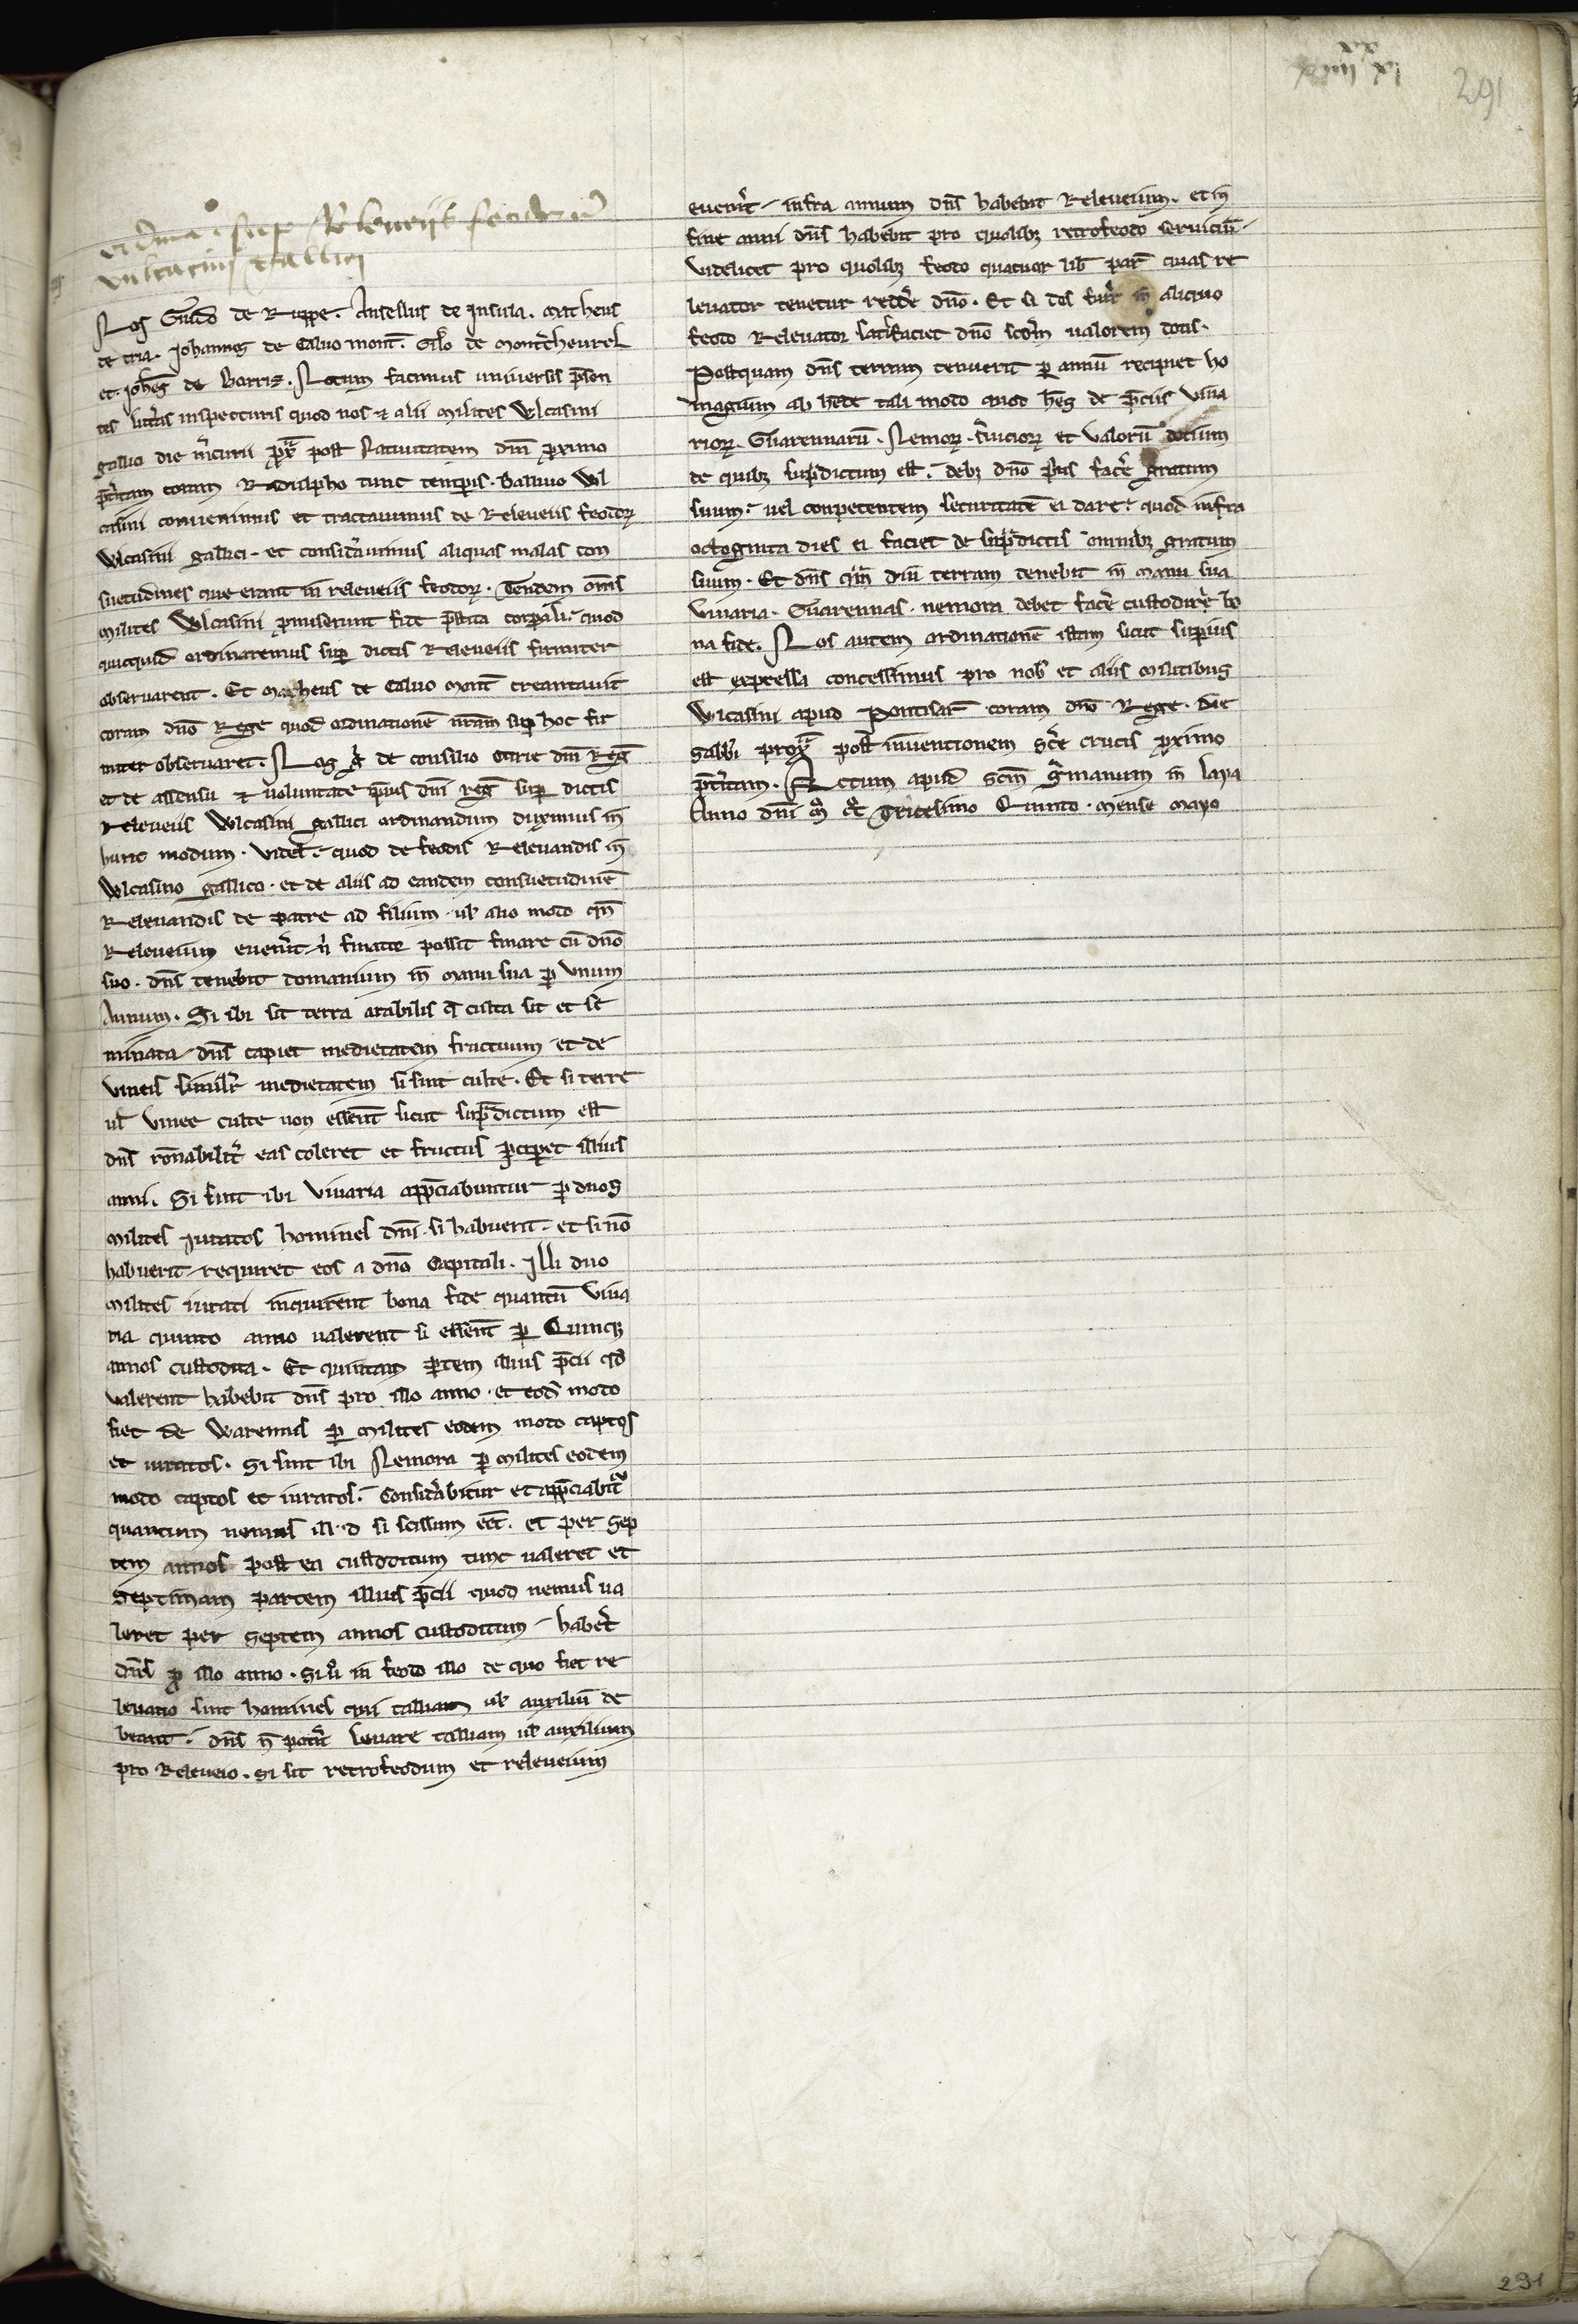 291
super Releveiis feodorum
vulcacini Gallici
Nos Guido de Ruppe. Ansellus de Insula. Matheus
de tria. Johannes de Calvo mont̄. Gilo de
et. Joh̄es de Borriz. Notum facimus universis p̄sen
tes litt̓as inspecturis quod nos & alii milites Wlcasini
gallici die m̓curii p̄x post Nativitatem dn̄i p̄ximo
p̄t̓itam coram Radulpho tunc temporis. Ballivo Wl
casini convenimus et tractavimus de Releveiis feodoꝝ
Wlcasini gallici. et consid̓avimus aliquas malas con
suetudines que erant in releveiis feodoꝝ. Tandem om̄s
milites Wlcasini p̄miserunt fide p̄stita corp̄ali. quod
quicquid ordinaremus sup̱ dictis Releveiis firmiter
observarent. Et Matheus de Calvo mont̄ creantavit
coram dn̄o Rege quod ordinationē nr̄am sup̱ hoc fir
miter observaret. Nos g̊ de consilio Curie dn̄i Reḡ
et de assensu & voluntate ipsius dn̄i reḡ sup̱ dictis
Releveiis Wlcasini gallici ordinandum duximus in
hunc modum. videl̄. quod de feodis Relevandis in
Wlcasino gallico. et de aliis ad eandem consuetudinē
Relevandis de patre ad filium. ul̄ alio modo qn̄
Releveium even̓it. n̓ finator possit finare cū dn̄o
suo. dn̄s tenebit domanium in manu sua ꝑ unum
Annum. Si ibi sit terra arabilis q̄ culta sit et se
minata. dn̄s capiet medietatem fructuum. et de
vineis similr̓ medietatem si sint culte. Et si terre
ul̄ vinee culte non essent sicut sup̄dictum est
dn̄s rōnabilit̓ eas coleret et fructus ꝑciꝑet illius
anni. Si sint ibi Vivaria app̄ciabuntur ꝑ duos
milites iuratos homines dn̄i. si habuerit. et si nō
habuerit. requiret eos a dn̄o Capitali. Illi duo
milites iurati inquirent bona fide quantū Viva
ria quinto anno valerent si essent ꝑ Quinqꝫ
annos custodita. Et quintam ꝑtem illius p̄cii qd̄
valerent habebit dn̄s pro illo anno. et eod̄ modo
fiet de Warennis ꝑ milites eodem modo captos
et iuratos. Si sint ibi Nemora ꝑ milites eodem
modo captos et iuratos. Consid̓abitur et app̄ciabit̓
quantum nemus ill.d si scissum eēt. et per Sep
tem annos post ea custoditum tunc valeret et
Septimam partem illius p̄cii quod nemus va
leret per Septem annos custoditum. habēt
dn̄s ꝓ illo anno. Si v̊ in feodo illo de quo fiet re
levatio sint homines qui talliam ul̄ auxiliū de
beant. dn̄s n̄ pot̓it levare talliam ul̄ auxilium
pro Releveio. Si sit retrofeodum et releveium
even̓it. infra annum dn̄s habebit Releveium. et in
fine anni dn̄s habebit pro quolibꝫ retrofeodo servicium.
videlicet pro quolibꝫ feodo quatuor lib̄ par̄ quas re
levator tenetur redd̓e dn̄o. Et si dos fu̓it in aliquo
feodo Relevator satisfaciet dn̄o scd̄m valorem dotis.
Postquam dn̄s terram tenuerit ꝑ annū recipiet ho
magium ab h̓ede tali modo quod h̓es de p̄ciis viva
rioꝝ. Guarennarū. Nemoꝝ. s̓vicioꝝ et valorū dotium
de quibꝫ sup̄dictum est. debꝫ dn̄o p̓us fac̓e gratum
suum. vel conpetentem securitatē ei dare. quod infra
octoginta dies ei faciet de sup̄dictis omnibꝫ gratum
suum. Et dn̄s qm̄ diu terram tenebit in manu sua
vivaria. Guarennas. nemora debet fac̓e custodire bo
na fide. Nos autem ordinationē istam sicut sup̱ius
est expressa concessimus pro nob̄ et aliis militibus
Wlcasini apud Pontisar̄ coram dn̄o Rege. Die
sabb̓i prox̄ post inventionem sc̄e crucis p̄ximo
p̄t̓itam. Actum apud scm̄ G̓manum in laya
Anno dn̄i m̊ cc̊ Tricesimo Quinto. mense mayo
291